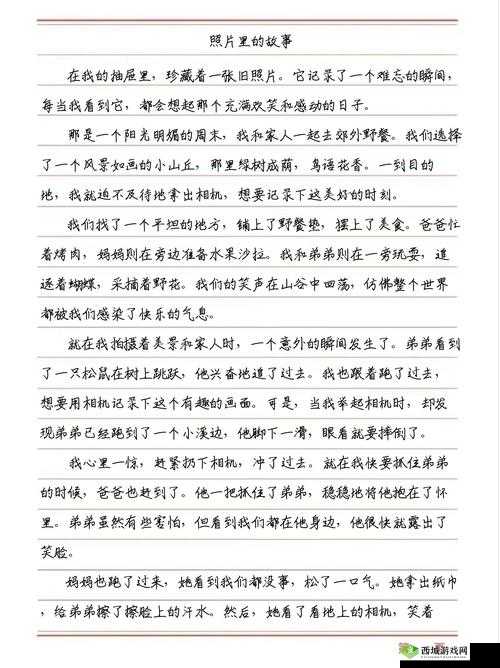 照片里的故事
在我的抽屉里，珍藏着一张旧照片。它记录了一个难忘的瞬间，
每当我看到它，都会想起那个充满欢笑和感动的日子。
那是一个阳光明媚的周末，我和家人一起去郊外野餐。我们选择
了一个风景如画的小山丘，那里绿树成荫，鸟语花香。一到目的
地，我就迫不及待地拿出相机，想要记录下这美好的时刻。
我们找了一个平坦的地方，铺上了野餐垫，摆上了美食。爸爸忙
着烤肉，妈妈则在旁边准备水果沙拉。我和弟弟则在一旁玩耍，追
逐着蝴蝶，采摘着野花。我们的笑声在山谷中回荡，仿佛整个世界
都被我们感染了快乐的气息。
就在我拍摄着美景和家人时，一个意外的瞬间发生了。弟弟看到
了一只松鼠在树上跳跃，他兴奋地追了过去。我也跟着跑了过去，
想要用相机记录下这个有趣的画面。可是，当我举起相机时，却发
现弟弟已经跑到了一个小溪边，他脚下一滑，眼看就要摔倒了。
我心里一惊，赶紧扔下相机，冲了过去。就在我快要抓住弟弟
的时候，爸爸也赶到了。他一把抓住了弟弟，稳稳地将他抱在了怀
里。弟弟虽然有些害怕，但看到我们都在他身边，他很快就露出了
笑脸。
妈妈也跑了过来，她看到我们都没事，松了一口气。她拿出纸巾
，给弟弟擦了擦脸上的汗水。然后，她看了看地上的相机，笑着
西城游戏网